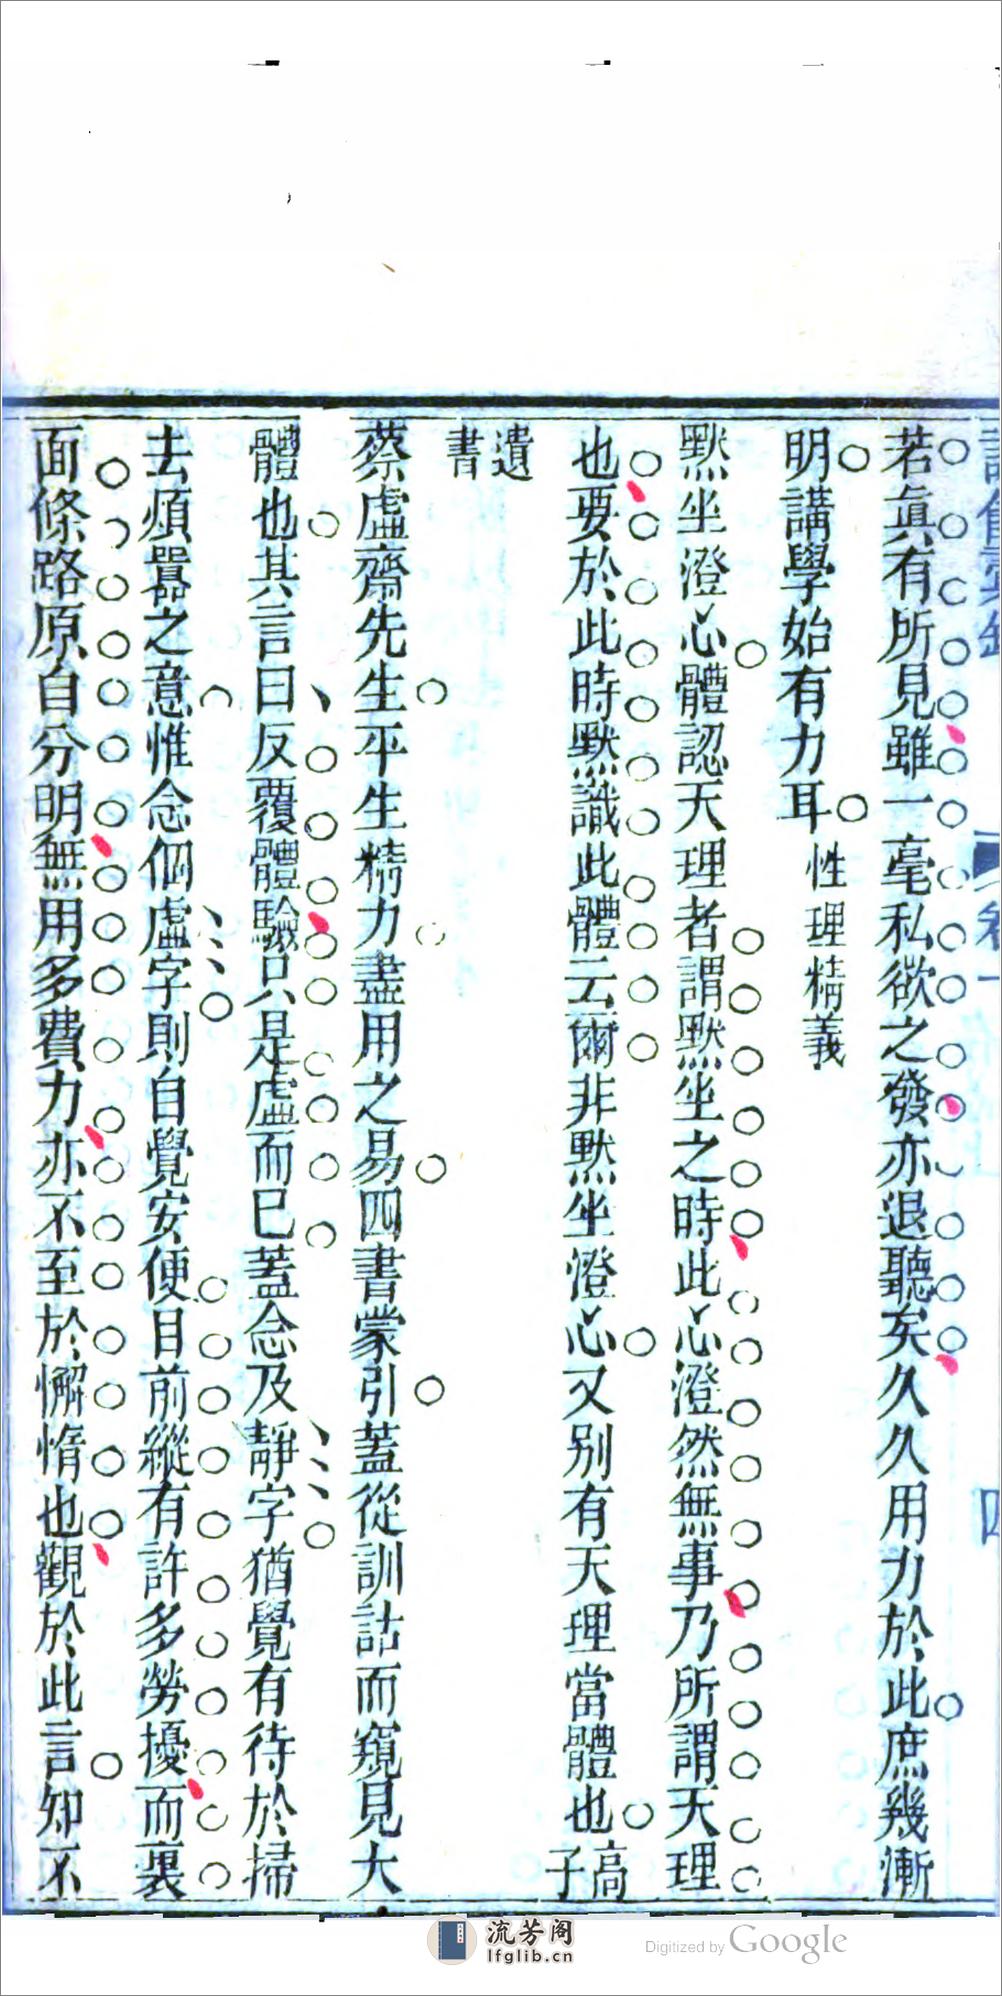 若眞有所見雖一毫私欲之發亦退聽矣久久用力於此庶幾漸
明講學始有力耳性理精義
默坐澄心體認天理者謂默坐之時此心澄然無事乃所謂天理
也要於此時默識此體云爾非默坐澄心又別有天理當體也高子
遺書
蔡虛齋先生平生精力盡用之易四書蒙引蓋從訓詁而窺見大
體也其言曰反覆體驗只是虛而已蓋念及靜字猶覺有待於掃
去煩囂之意惟念個虛字則自覺安便目前縱有許多勞擾而裏
面條路原自分明無用多費力亦不至於懈惰也觀於此言知不
流芳阁
lfglib.cn
Digitized by Google